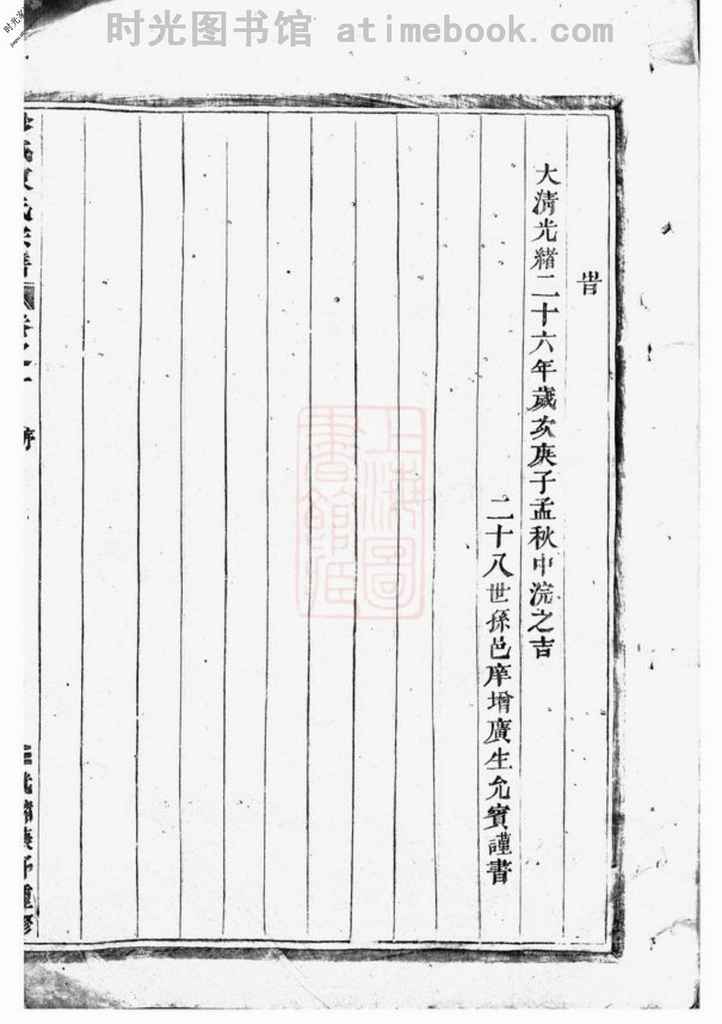 时光图书馆 atimebook.com
旹
大清光緒二十六年歲次庚子孟秋中浣之吉
二十八世孫邑庠增廣生允實謹書
上海圖
書館藏
序
庚子重修